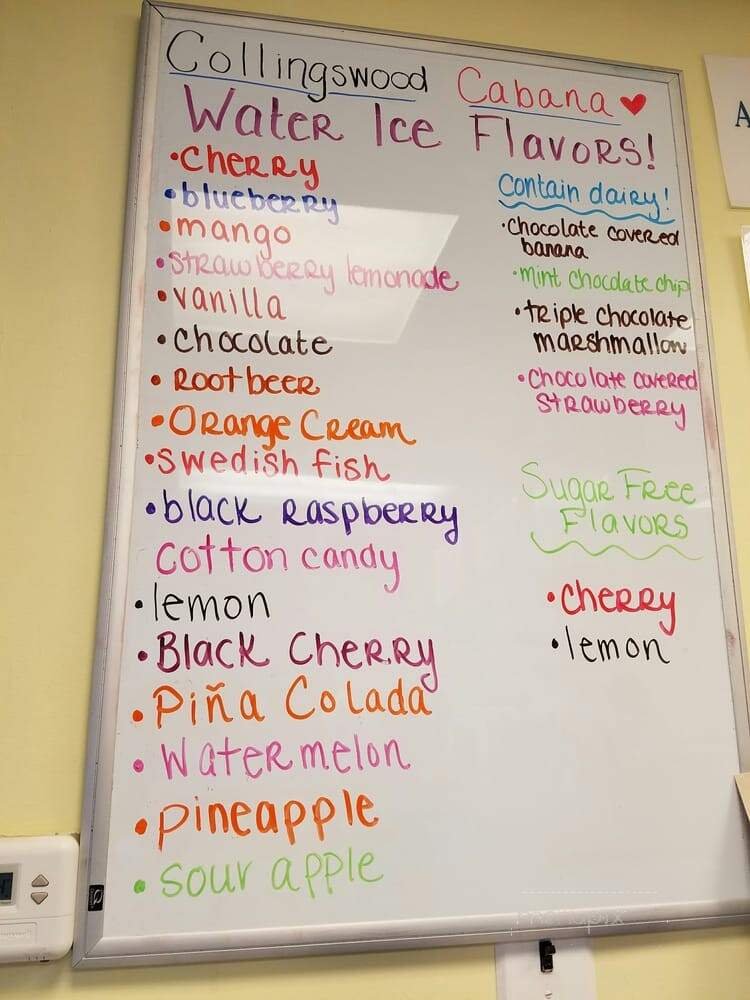 Collingswood Cabana ♥
Water Ice Flavors!
•cherry
•blueberry
•mango
•strawberry lemonade
•vanilla
•chocolate
•Root beer
•Orange Cream
•swedish fish
•black raspberry
cotton candy
•lemon
•Black Cherry
•Piña Colada
•Watermelon
•pineapple
•sour apple
contain dairy!
•chocolate covered
banana
•mint chocolate chip
•triple chocolate
marshmallow
•chocolate covered
strawberry
Sugar Free
Flavors
•cherry
•lemon
A